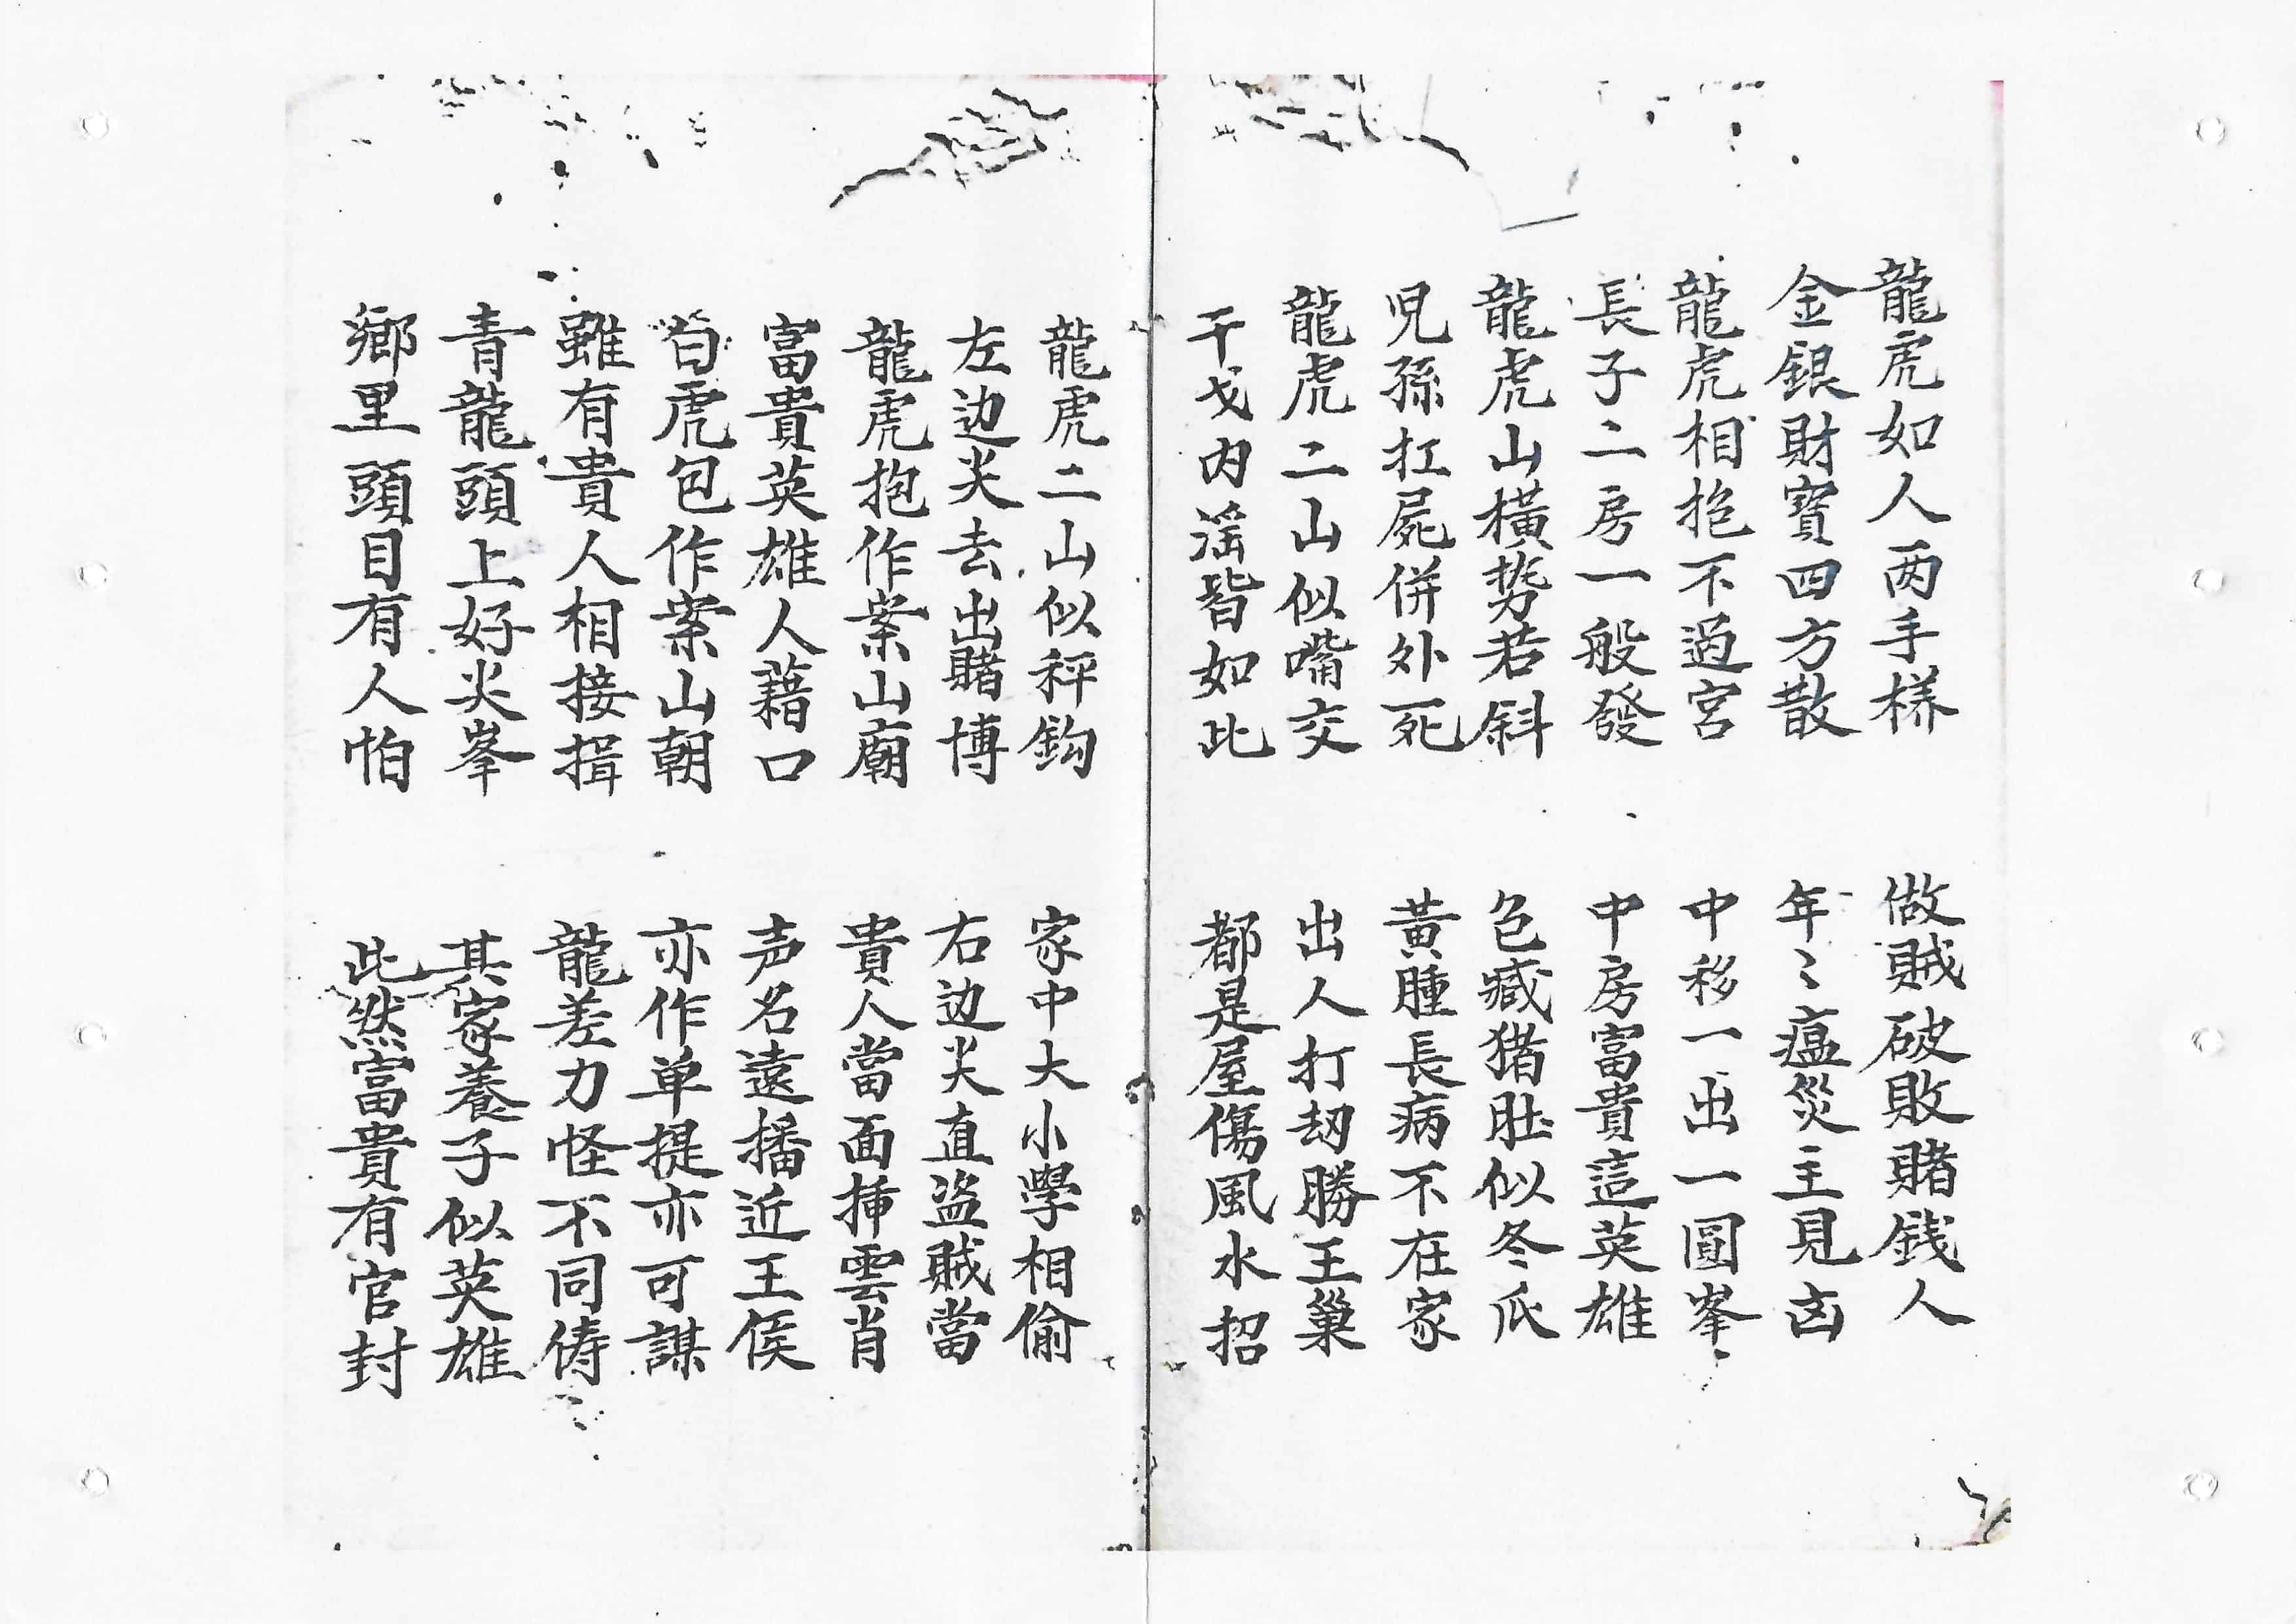 龍虎如人两手樣　做賊破敗賭銭人
金銀財寶四方散　年〻瘟災主見凶
龍虎相抱不過宮　中移一出一圓峯
長子二房一般發　中房富貴這英雄
龍虎山橫势若斜　色臧猪肚似冬瓜
児孫扛屍併外死　黃腫長病不在家
龍虎二山似嘴交　出人打劫勝王巢
干戈内滛皆如此　都是屋傷風水招
龍虎二山似秤鈎　家中大小學相偷
左边尖去出賭博　右边尖直盗賊當
龍虎抱作案山廟　貴人當面挿雲肖
富貴英雄人藉口　声名遠播近王侯
白虎包作案山朝　亦作单提亦可謀
雖有貴人相接揖　龍差力怪不同俦
青龍頭上好尖峯　其家養子似英雄
鄉里頭目有人怕　此然富貴有官封